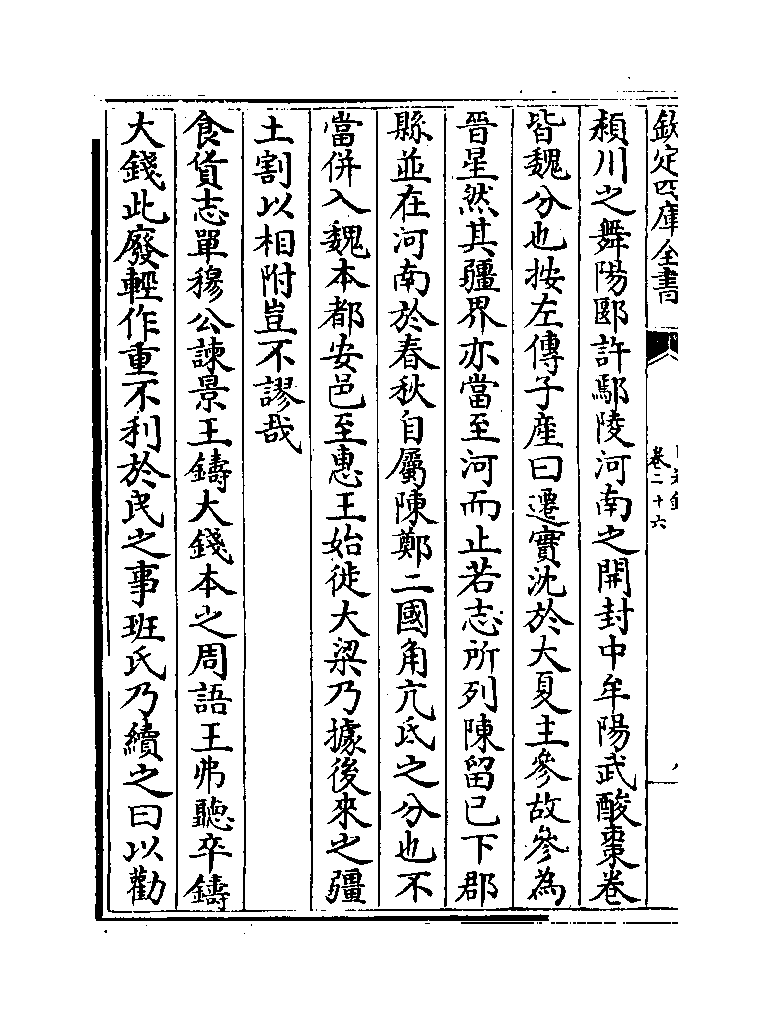 欽定四庫全書
卷二十六
潁川之舞陽郾許鄢陵河南之開封中牟陽武酸棗卷
皆魏分也按左傳子產曰遷實沈於大夏主參故參為
晉星然其疆界亦當至河而止若志所列陳留已下郡
縣並在河南於春秋自屬陳鄭二國角亢氐之分也不
當併入魏本都安邑至惠王始徙大梁乃據後來之疆
土割以相附豈不謬哉
食貨志單穆公諫景王鑄大錢本之周語王弗聽卒鑄
大錢此廢輕作重不利於民之事班氏乃續之曰以勸